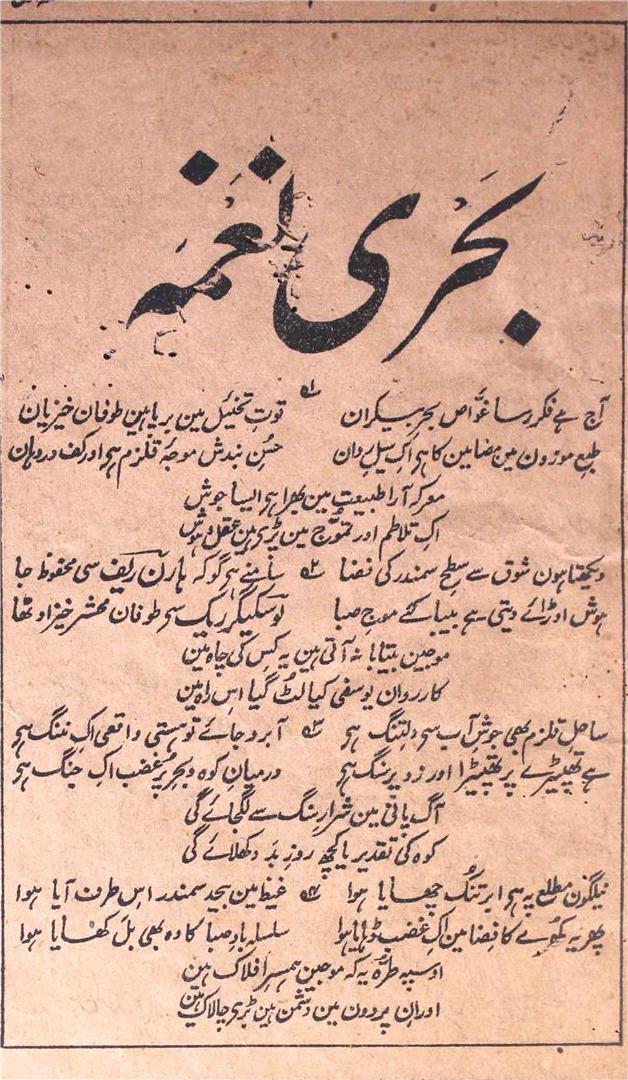 بحری نغمہ
۱
آج ہے فکر رسا غوّاص بحر بیکران قوتِ تخئیل مین برپا ہین طوفان خیزیان
طبع موزون مین مضامین کا ہر اک سیل روان حسنِ بندش موجۂ قلزم ہر اور کف در دہان
معرکہ آرا طبیعت مین بھرا ہر ایسا جوش
اک تلاطم اور تموّج مین پڑی ہین عقل و ہوش
۲
دیکھتا ہون شوق سے سطحِ سمندر کی فضا سامنے ہر گو کہ ہارن ریف سی محفوظ جا
ہوش اوڑائے دیتی ہے بیباک موجِ صبا لو سکیگر ریک سی طوفان محشر خیز اوٹھا
موجین بیتابانہ آتی ہین یہ کس کی چاہ مین
کاروان یوسفی کیا لٹ گیا اس راہ مین
۳
ساحل قلزم بھی جوشِ آب سی دلتنگ ہر آبرو جائے تو ہستی واقعی اک ننگ ہر
ہے تھپیڑے پر تھپیڑا اور زد پر سنگ ہر درمیانِ کوہ و بحرِ پُر غضب اک جنگ ہر
آگ پانی مین شرارِ سنگ سے لگجائے گی
کوہ کی تقدیر یا کچھ روزِ بد دکھلائے گی
۴
نیلگون مطلع پہ ہر ابر تنک چھایا ہوا غیظ مین بیحد سمندر اس طرف آیا ہوا
پھر یہ کھُرے کا فضا مین اک غضب ڈھایا ہوا سلسلہ بادِ صبا کا وہ بھی بل کھایا ہوا
اوسپہ طرّہ یہ کہ موجین ہمسرِ افلاک ہین
اور ان پردون مین دشمن ہین بڑی چالاک ہین